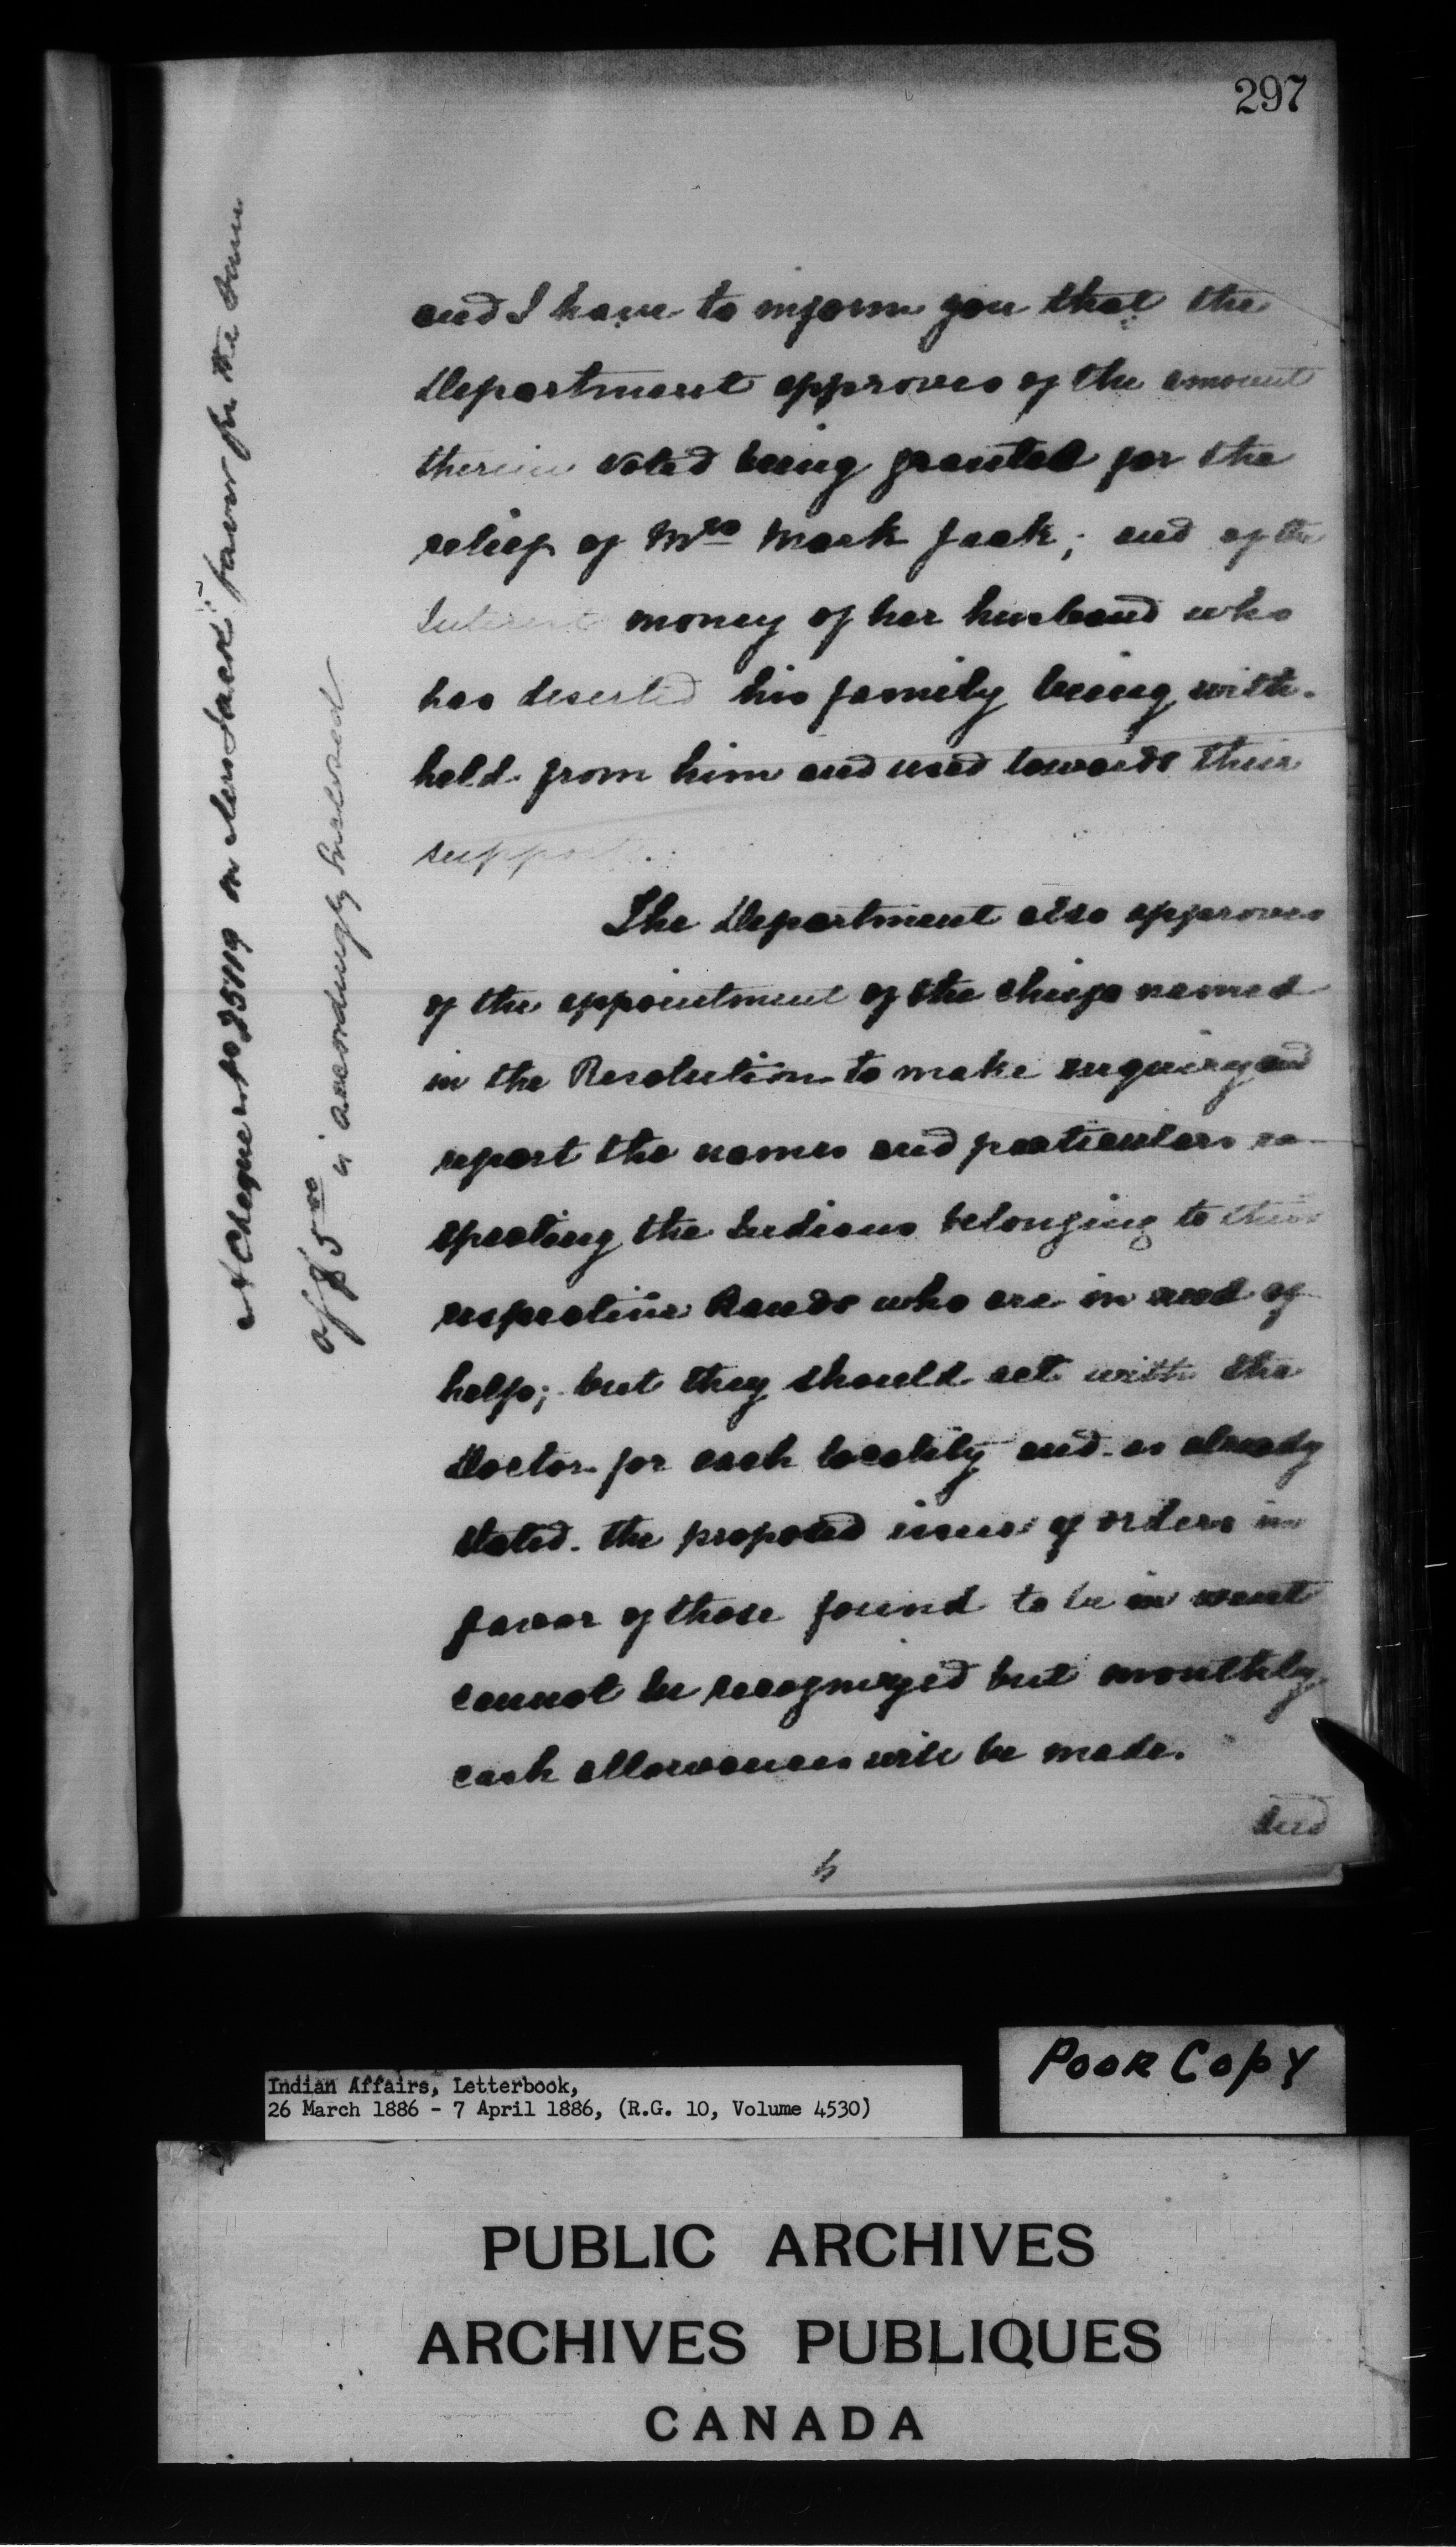 297
and I have to inform you that the
Department approves of the amount
therein voted being granted for the
relief of Mrs Mark Jack; and of the
Interest money of her husband who
has deserted his family being with-
held from him and used towards their
support.
The Department also approves
of the appointment of the chiefs named
in the Resolution to make enquiry and
report the names and particulars re-
specting the Indians belonging to their
respective Bands who are in need of
help; but they should act with the
Doctor for each locality and as already
stated the proposed issue of orders in
favor of those found to be in want
cannot be recognized but monthly
cash allowances will be made.
And
A Cheque No 25119 in Mrs Jack's favor for the sum
of $5.00 is accordingly enclosed
Poor Copy
Indian Affairs, Letterbook,
26 March 1886 - 7 April 1886, (R.G. 10, Volume 4530)
PUBLIC ARCHIVES
ARCHIVES PUBLIQUES
CANADA